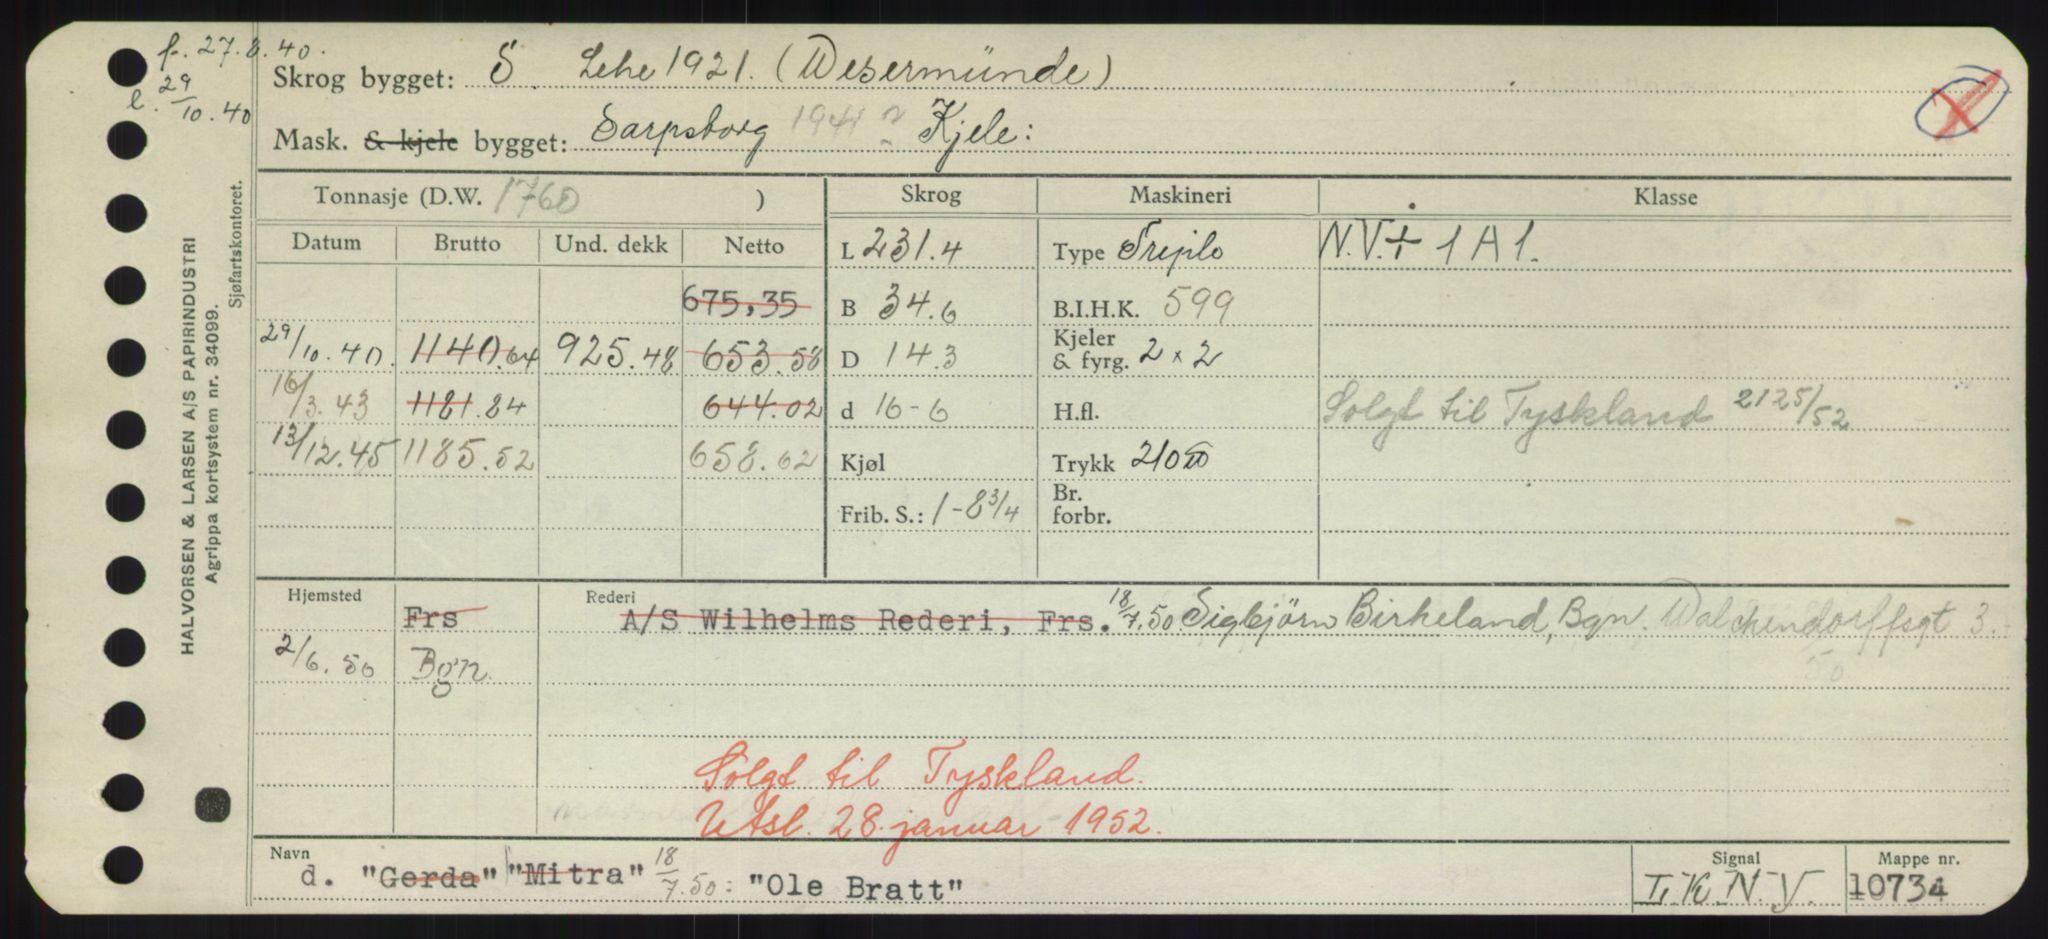 f. 27.8.40.
l. 29/10.40
Skrog bygget: S Lehe 1921. (Wesermünde)
Mask. & kjele bygget: Sarpsborg 1941 ? Kjele:
Tonnasje (D.W. 1760 ) Skrog Maskineri Klasse
Datum Brutto Und. dekk Netto L 231.4 Type Tripilo N.V.+ 1A1.
675,35 B 34.6 B.I.H.K. 599
29/10.40. 1140.64 925.48 653.58 D 14.3 Kjeler & fyrg. 2 x 2
16/3.43 1181.84 644.02 d 16-6 H.fl. Solgt til Tyskland 2125/52
13/12.45 1185.52 658.62 Kjøl Trykk 210
Frib. S.: 1-8 3/4 Br. forbr.
Hjemsted Frs Rederi A/S Wilhelms Rederi, Frs. 18/7.50 Sigbjörn Birkeland, Bgn. Walchendorffsgt 3.
2/6.50 Bgn. 50
Solgt til Tyskland.
Utsl. 28. januar 1952.
Navn d. "Gerda" "Mitra" 18/7.50: "Ole Bratt" Signal L.K.N.Y. Mappe nr. 10734
HALVORSEN & LARSEN A/S PAPIRINDUSTRI
Agrippa kortsystem nr. 34099.
Sjøfartskontoret.